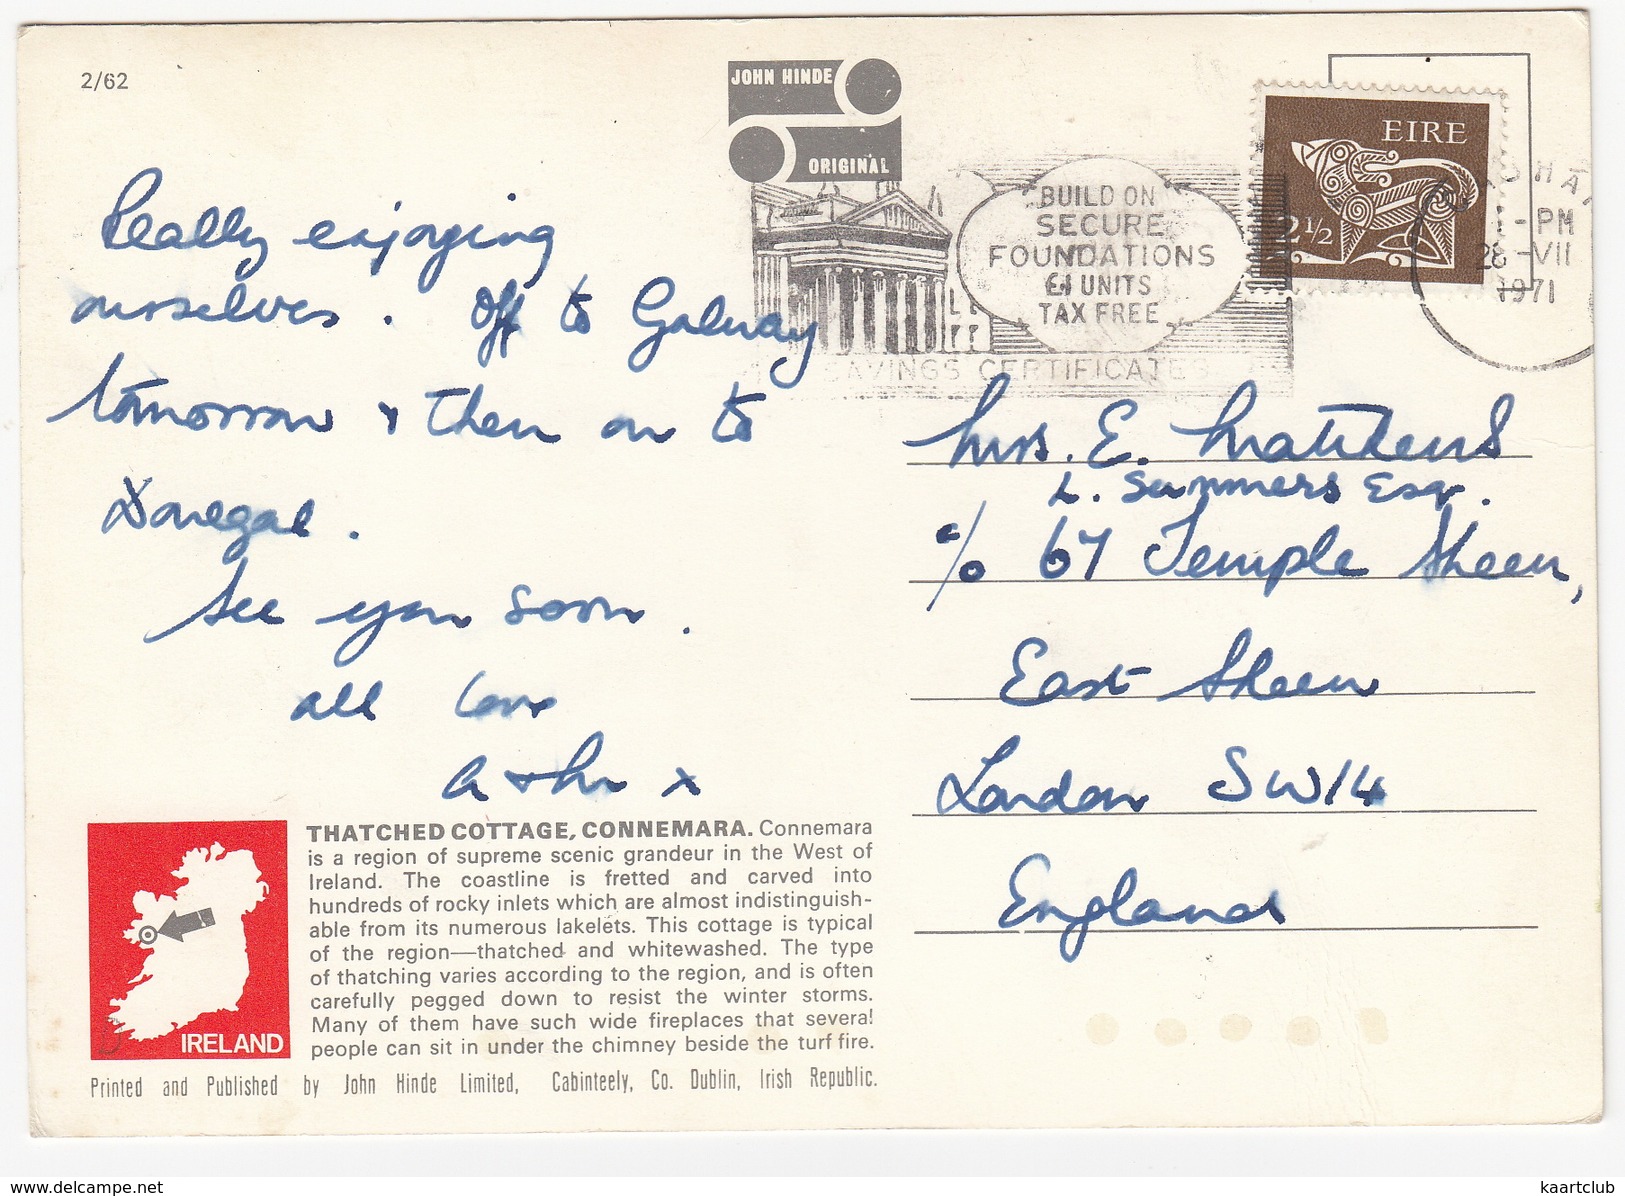 2/62
JOHN HINDE
ORIGINAL
EIRE
2 1/2
BUILD ON
SECURE
FOUNDATIONS
£1 UNITS
TAX FREE
SAVINGS CERTIFICATES
1-PM
28-VII
1971
Really enjoying
ourselves. Off to Galway
tomorrow & then on to
Donegal.
See you soon.
all love
x
Mrs. E. Matthews
L. Summers Esq.
c/o 67 Temple Sheen,
East Sheen
London SW14
England
THATCHED COTTAGE, CONNEMARA. Connemara
is a region of supreme scenic grandeur in the West of
Ireland. The coastline is fretted and carved into
hundreds of rocky inlets which are almost indistinguish-
able from its numerous lakelets. This cottage is typical
of the region—thatched and whitewashed. The type
of thatching varies according to the region, and is often
carefully pegged down to resist the winter storms.
Many of them have such wide fireplaces that several
people can sit in under the chimney beside the turf fire.
IRELAND
Printed and Published by John Hinde Limited, Cabinteely, Co. Dublin, Irish Republic.
www.delcampe.net
kaartclub